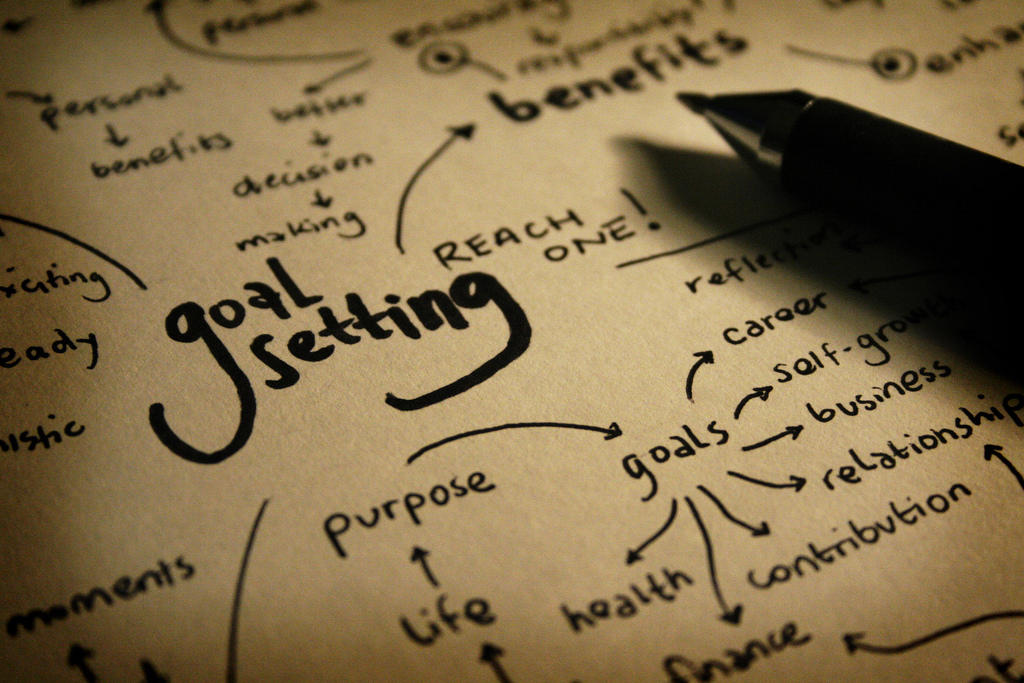 personal
ensuring
responsibility
benefits
personal
benefits
better
decision
making
REACH
ONE!
goal
setting
reflection
career
self-growth
business
relationship
goals
purpose
contribution
health
life
finance
moments